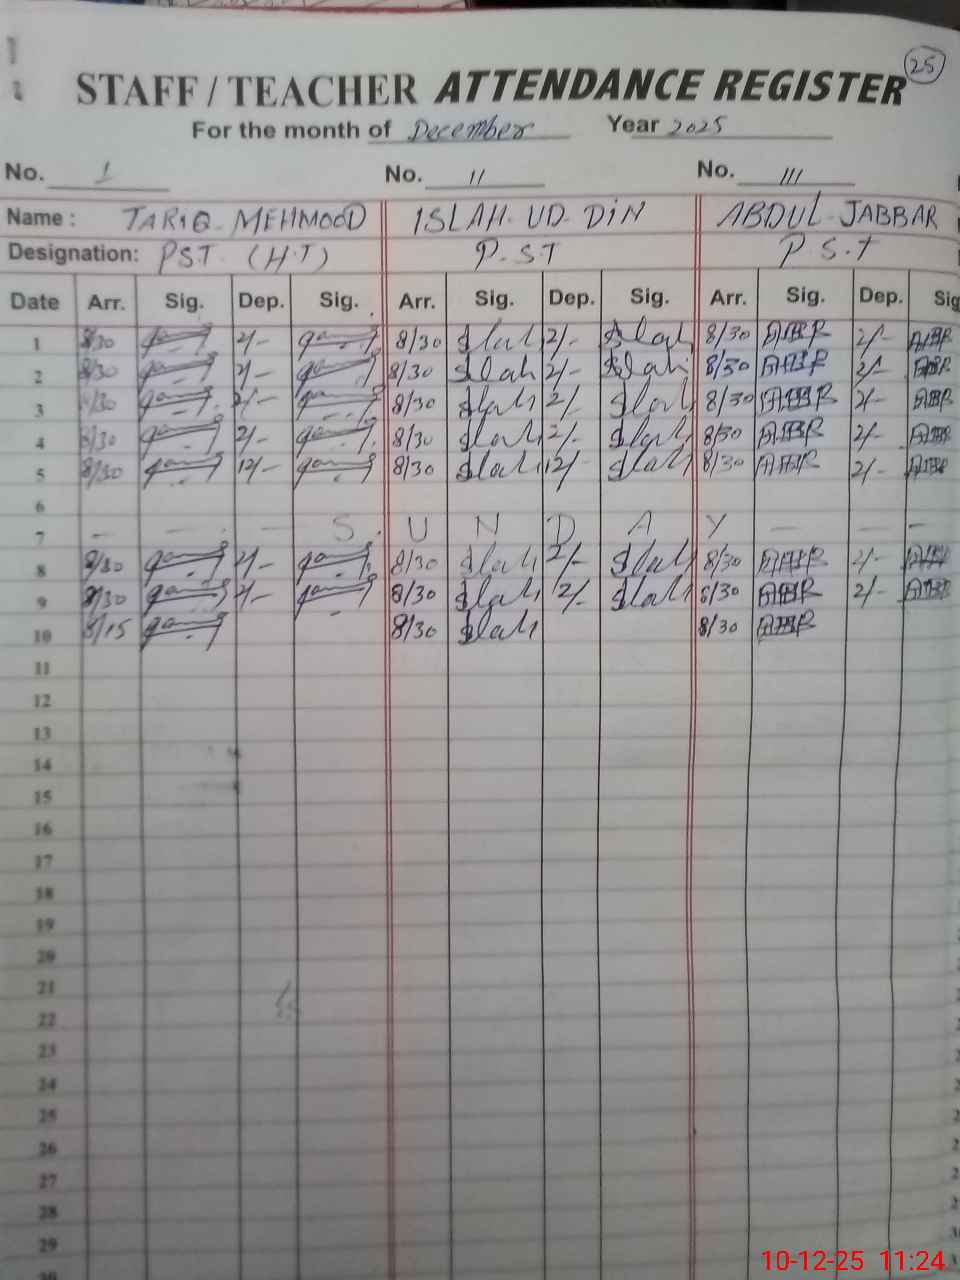 25
STAFF / TEACHER ATTENDANCE REGISTER
For the month of December Year 2025
No. 1 No. 11 No. 111
Name : TARIQ-MEHMOOD ISLAH-UD-DIN ABDUL-JABBAR
Designation: PST. (H.T) P.ST P S.T
Date Arr. Sig. Dep. Sig. Arr. Sig. Dep. Sig. Arr. Sig. Dep. Sig
1 8/30 2/- 8/30 Islah 2/- Islah 8/30 2/-
2 8/30 2/- 8/30 Islah 2/- Islah 8/30 2/-
3 8/30 2/- 8/30 Islah 2/- Islah 8/30 2/-
4 8/30 2/- 8/30 Islah 2/- Islah 8/30 2/-
5 8/30 12/- 8/30 Islah 12/- Islah 8/30 2/-
6
7 — — — S U N D A Y — — —
8 8/30 2/- 8/30 Islah 2/- Islah 8/30 2/-
9 8/30 2/- 8/30 Islah 2/- Islah 8/30 2/-
10 8/15 8/30 Islah 8/30
11
12
13
14
15
16
17
18
19
20
21
22
23
24
25
26
27
28
29
10-12-25 11:24